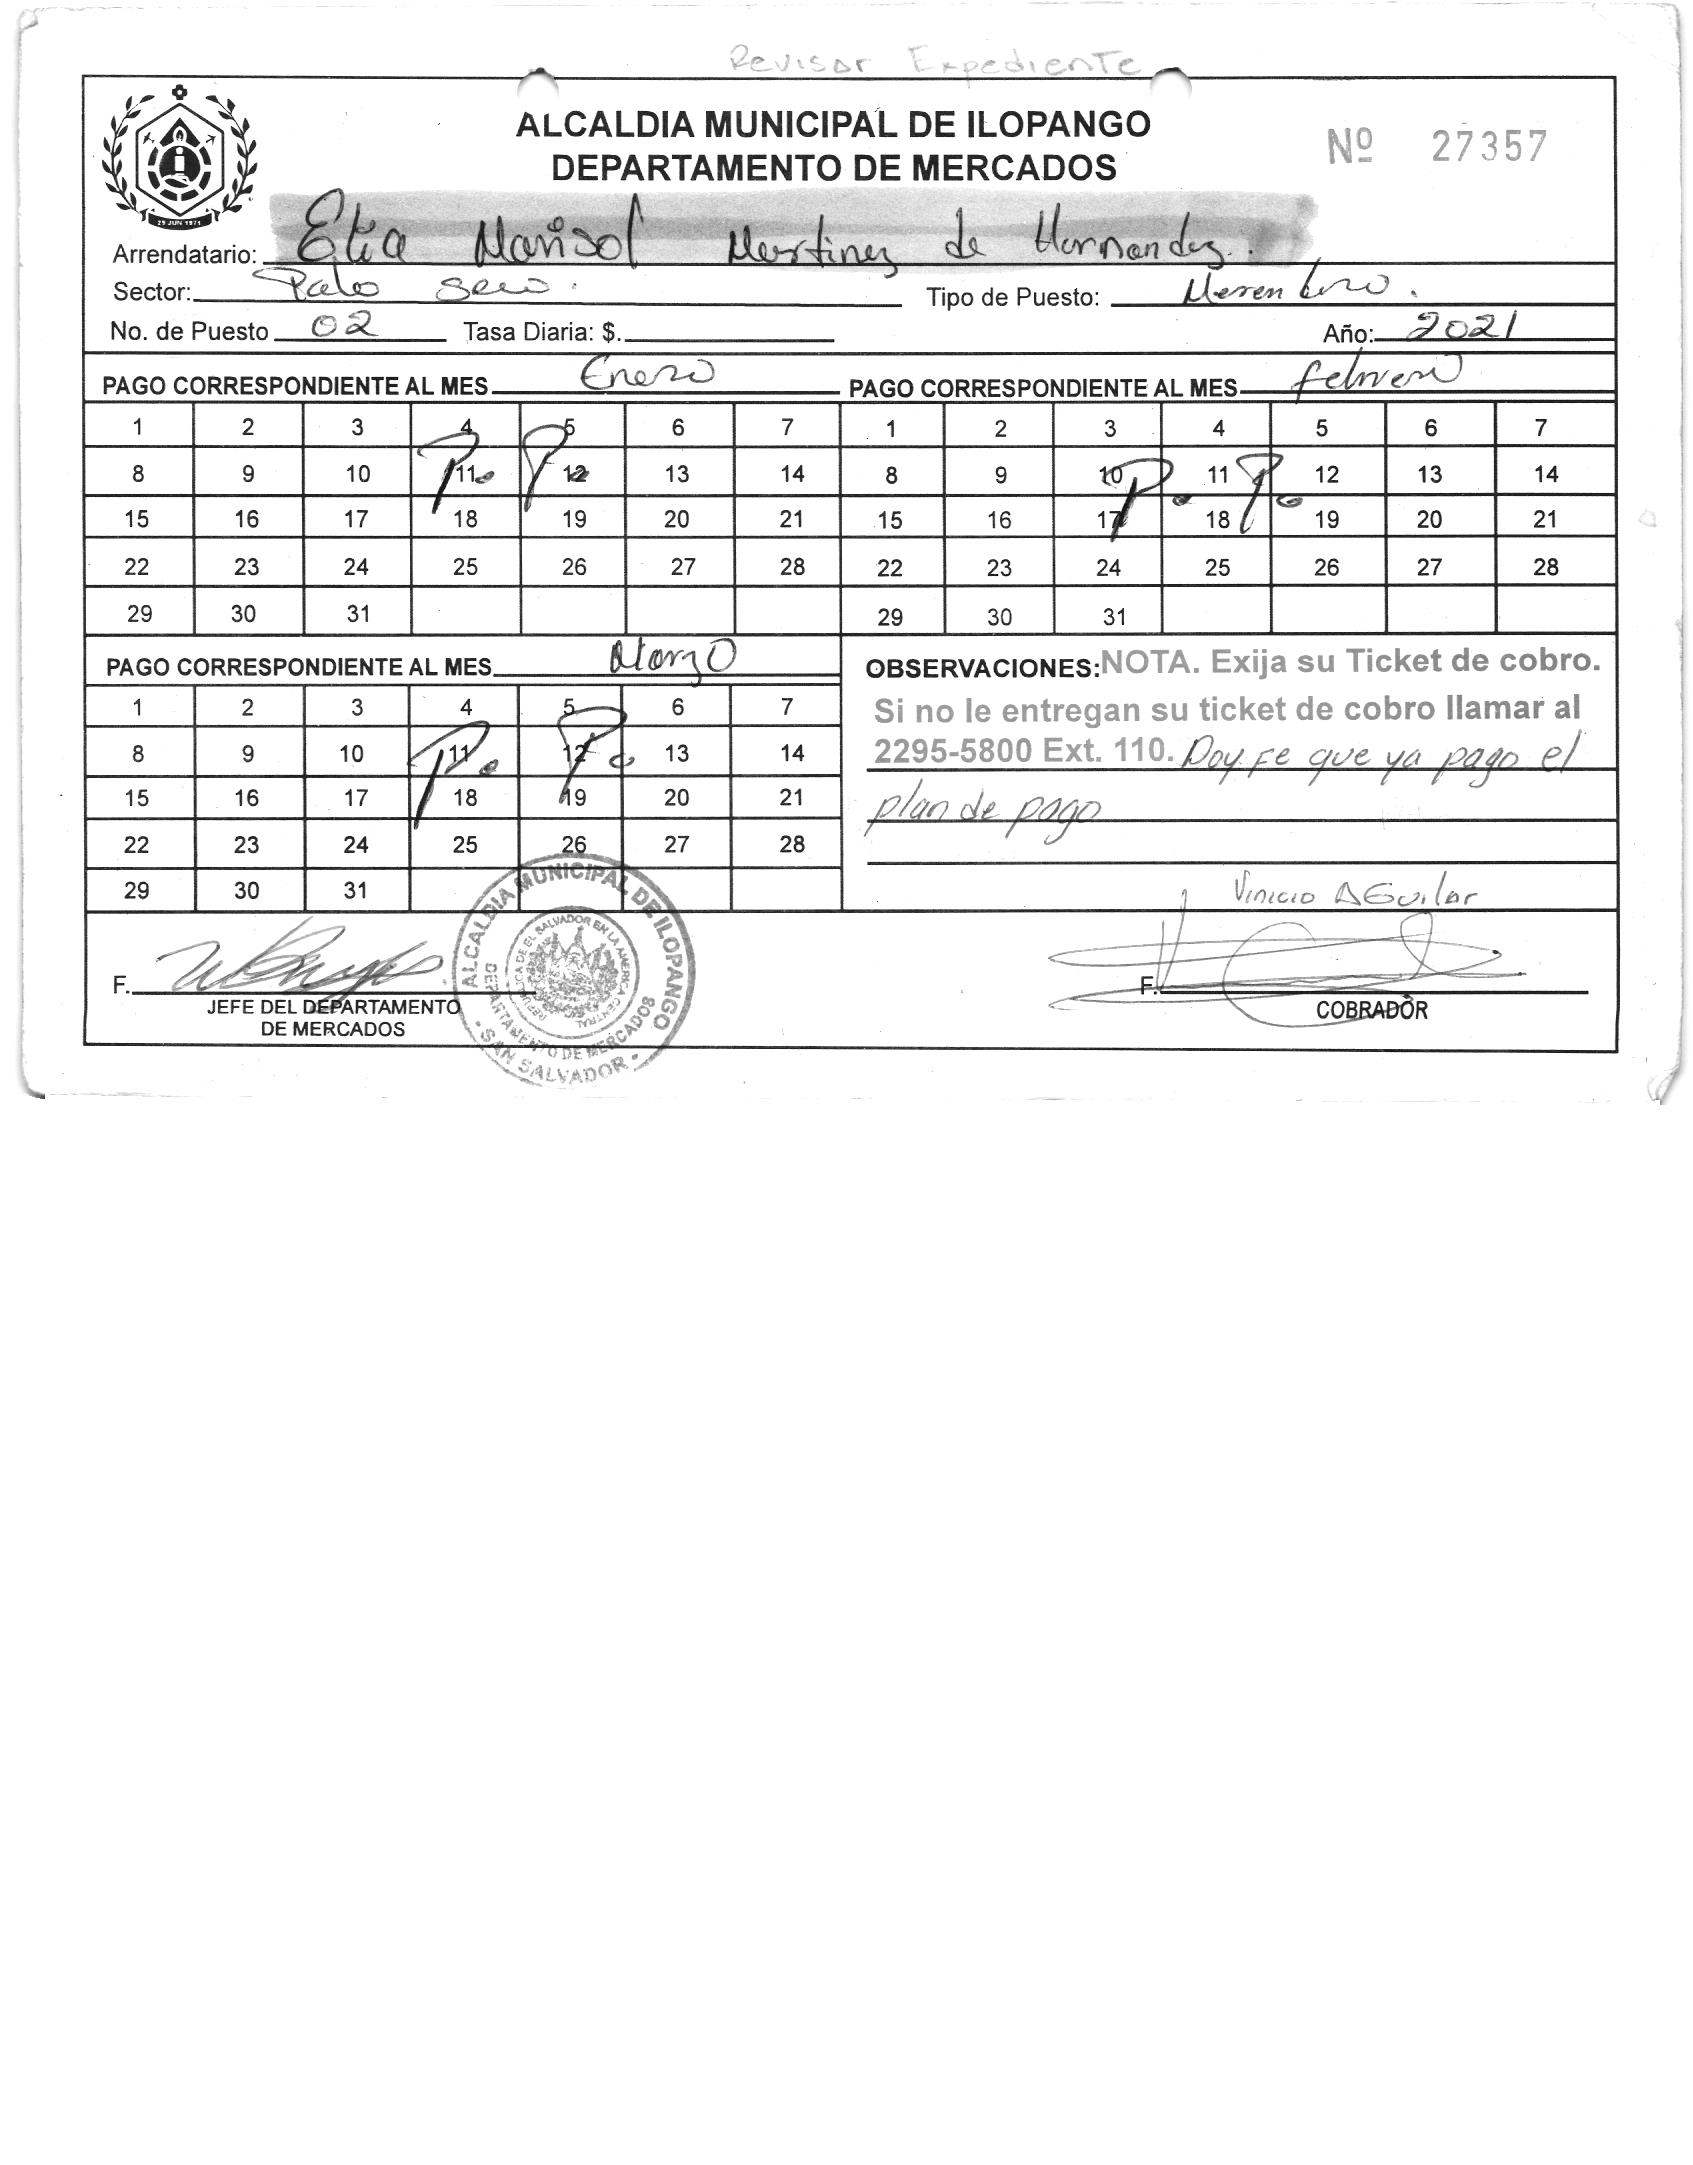 Revisar Expediente
ALCALDIA MUNICIPAL DE ILOPANGO
DEPARTAMENTO DE MERCADOS
Nº 27357
29 JUN 1971
Arrendatario: Elia Marisol Martinez de Hernandez.
Sector: Palo Seco. Tipo de Puesto: Merendero.
No. de Puesto 02 Tasa Diaria: $. Año: 2021
PAGO CORRESPONDIENTE AL MES Enero
1 2 3 4 5 6 7
8 9 10 11 12 13 14
15 16 17 18 19 20 21
22 23 24 25 26 27 28
29 30 31
P. P.
PAGO CORRESPONDIENTE AL MES febrero
1 2 3 4 5 6 7
8 9 10 11 12 13 14
15 16 17 18 19 20 21
22 23 24 25 26 27 28
29 30 31
P. P.
PAGO CORRESPONDIENTE AL MES Marzo
1 2 3 4 5 6 7
8 9 10 11 12 13 14
15 16 17 18 19 20 21
22 23 24 25 26 27 28
29 30 31
P. P.
OBSERVACIONES: NOTA. Exija su Ticket de cobro.
Si no le entregan su ticket de cobro llamar al
2295-5800 Ext. 110. Doy Fe que ya pago el
plan de pago
Vinicio Aguilar
F.
JEFE DEL DEPARTAMENTO
DE MERCADOS
ALCALDIA MUNICIPAL DE ILOPANGO
DEPARTAMENTO DE MERCADOS
REPUBLICA DE EL SALVADOR EN LA AMERICA CENTRAL
- SAN SALVADOR -
F.
COBRADOR